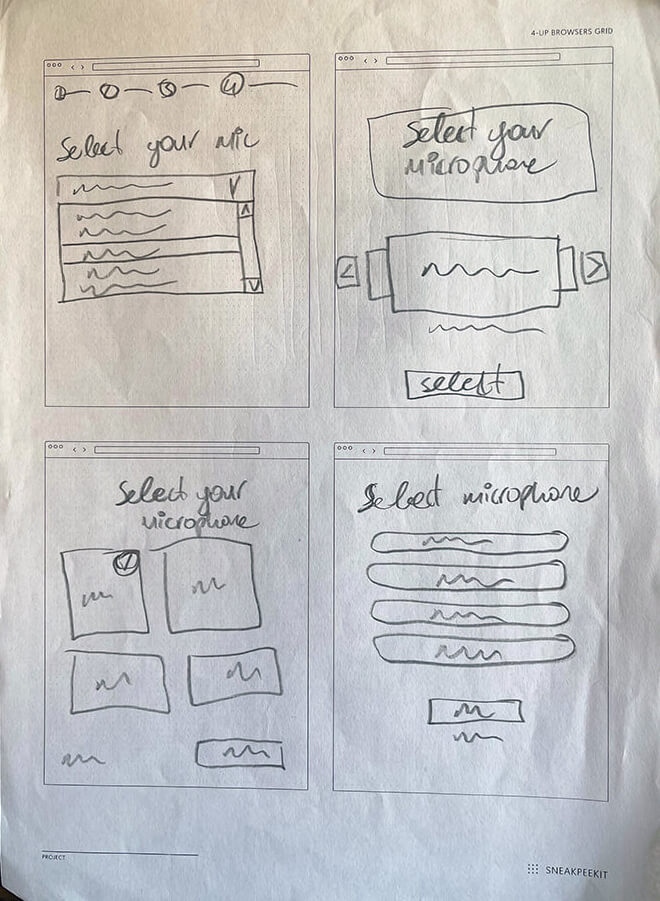 4-UP BROWSERS GRID
1 2 3 4
Select your mic
Select your
microphone
select
Select your
microphone
Select microphone
PROJECT
SNEAKPEEKIT